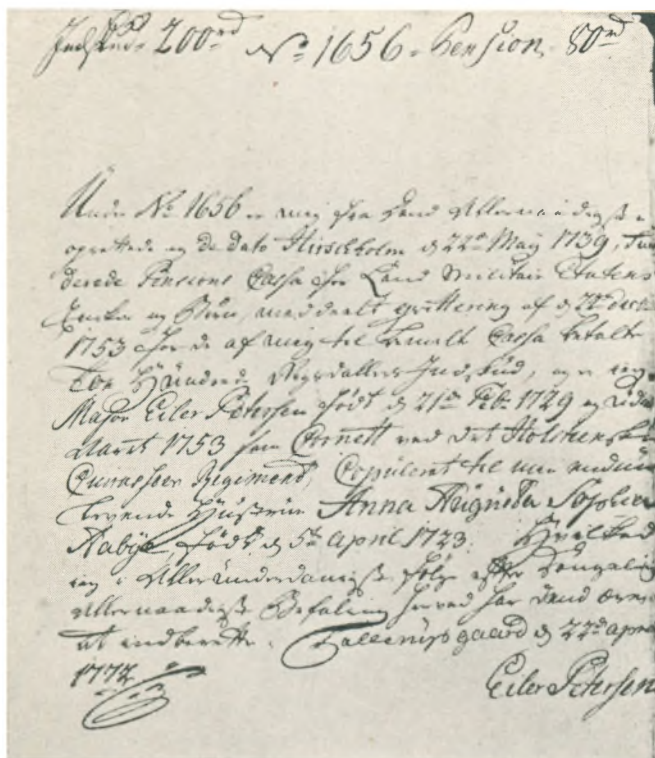 Indskud. 200 rd No. 1656. Pension. 80 rd
Under No. 1656 er mig fra Allernaadigst
oprettede og de dato Hirschholm d. 22de May 1739, fun
derede Pensions Cassa for Land Militair Etatens
Enker og Børn, meddeelt qvittering af d. 22de
1753 for de af mig til bemelt Cassa betalte
Hundrede Rigsdallers Indskud, og er ieg
Major Eiler Petersen født d. 21de Feb. 1729 og
1753 som Cornett ved det Holsteenske
Regiment, Copuleret til min
levende Hustrue Anna Augusta Sophia
født d. 5te April 1723. Hvilked
ieg i Allerunderdanigst følge efter Kongelig
Allernaadigst Befaling herved har
at indberette. d. 22de April
1772
Eiler Petersen